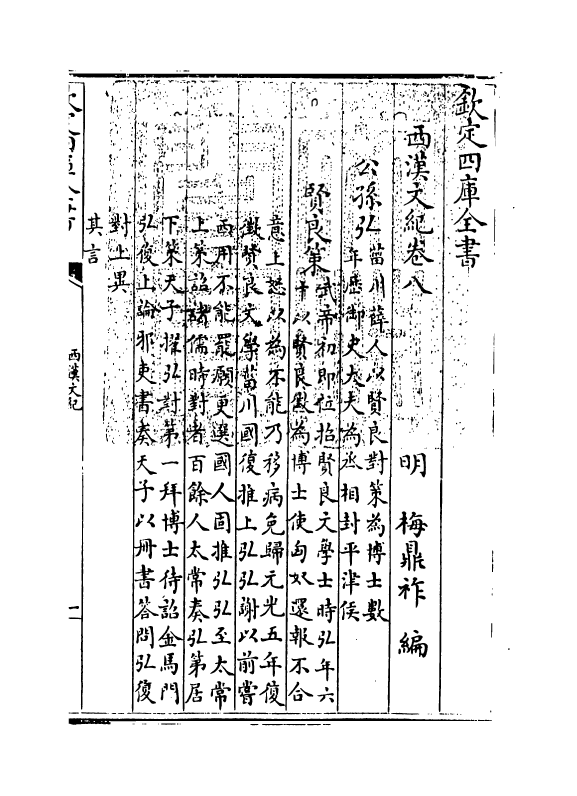 欽定四庫全書
西漢文紀卷八
明 梅鼎祚 編
公孫弘
菑川薛人以賢良對策為博士數
年歷御史大夫為丞相封平津侯
賢良策
武帝初即位招賢良文學士時弘年六
十以賢良徵為博士使匈奴還報不合
意上怒以為不能乃移病免歸元光五年復
徵賢良文學菑川國復推上弘弘謝以前嘗
西用不能罷願更選國人固推弘弘至太常
上策詔諸儒時對者百餘人太常奏弘第居
下策天子擢弘對第一拜博士待詔金馬門
弘復上論邪吏書奏天子以冊書答問弘復
對上異
其言
西漢文紀
一